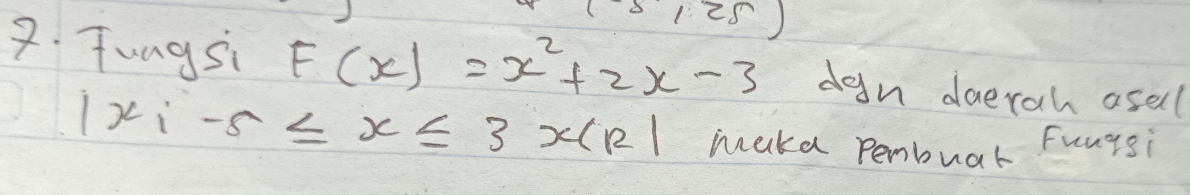 (-5, 25)
7. Fungsi F(x) = x² + 2x - 3 dgn daerah asal
|x; -5 ≤ x ≤ 3 x(R| maka pembuat Fungsi